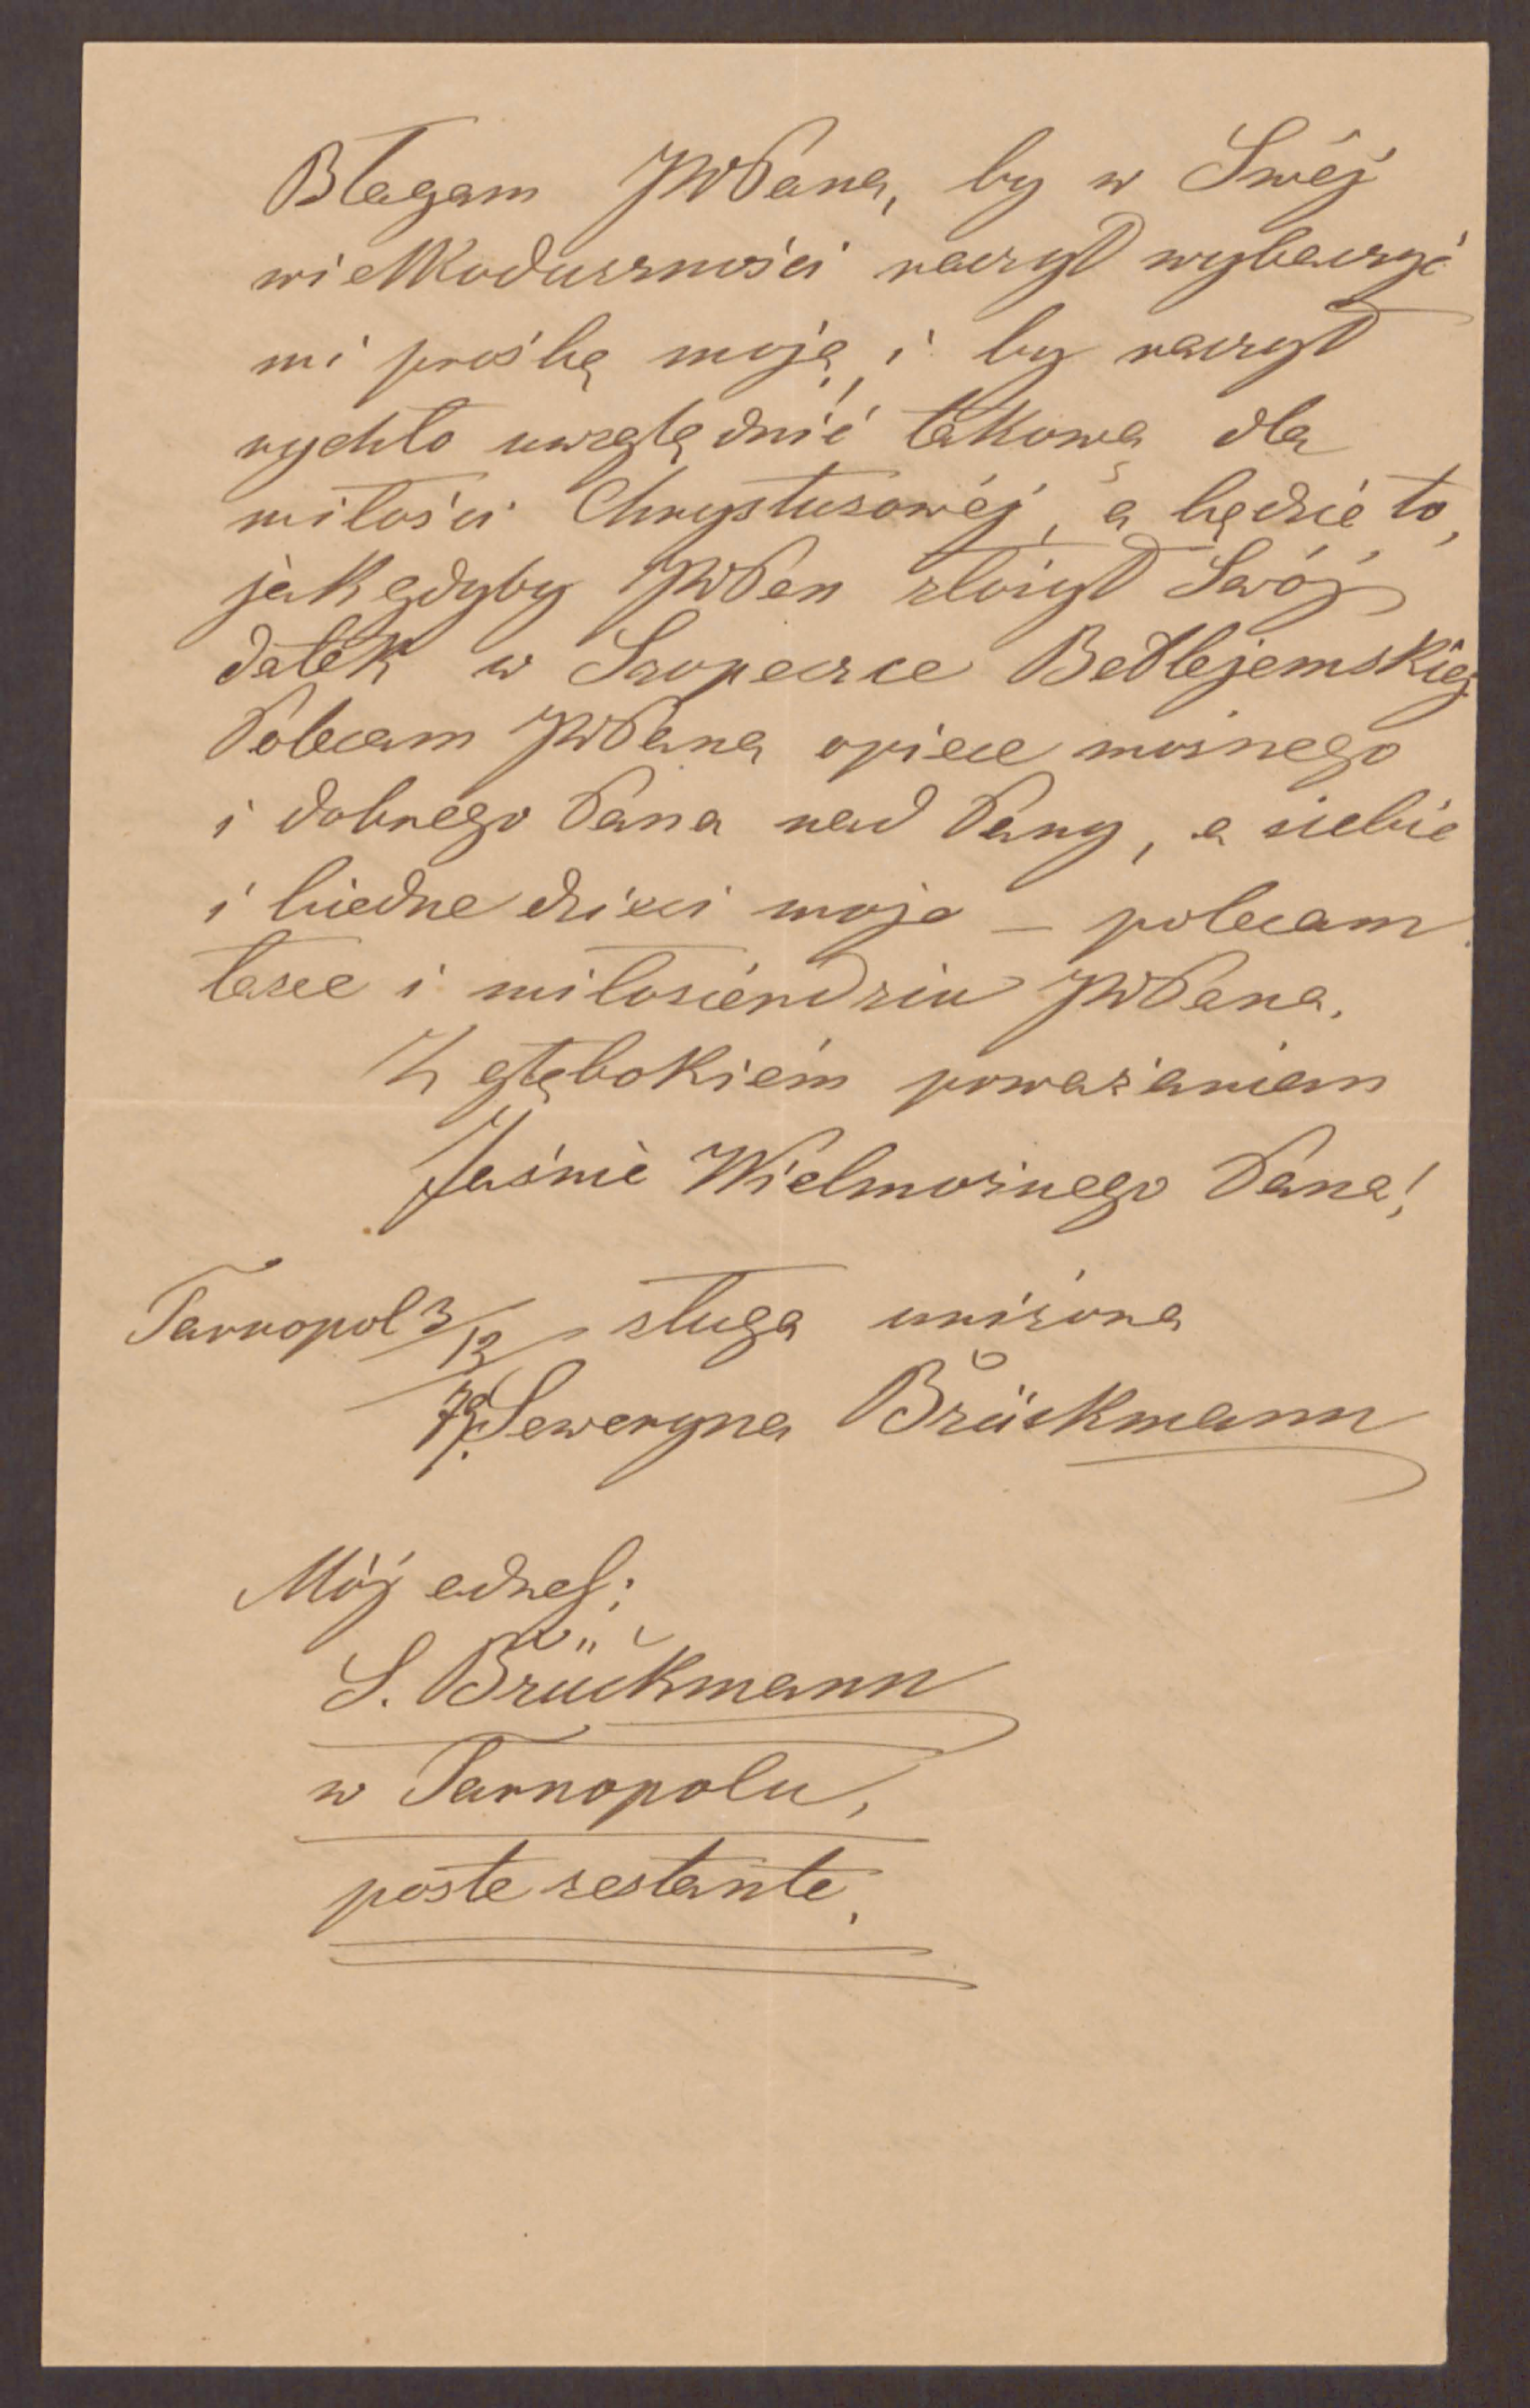 Błagam JWPana, by w Swéj
wielkoduszności raczył wybaczyć
mi prośbę moją, i by raczył
rychło uwzględnić takową dla
miłości Chrystusowéj, a będzie to,
jak gdyby JWPan złożył Swój
datek w Szopeczce Betlejemskiéj
Polecam JWPana opiece możnego
i dobrego Pana nad Pany, a siebie
i biedne dzieci moje – polecam
łasce i miłosierdziu JWPana.
Z głębokiém poważaniem
Jaśnie Wielmożnego Pana!
Tarnopol 3/12 sługa uniżona
79. Seweryna Brückmann
Mój adres:
S. Brückmann
w Tarnopolu,
poste restante.